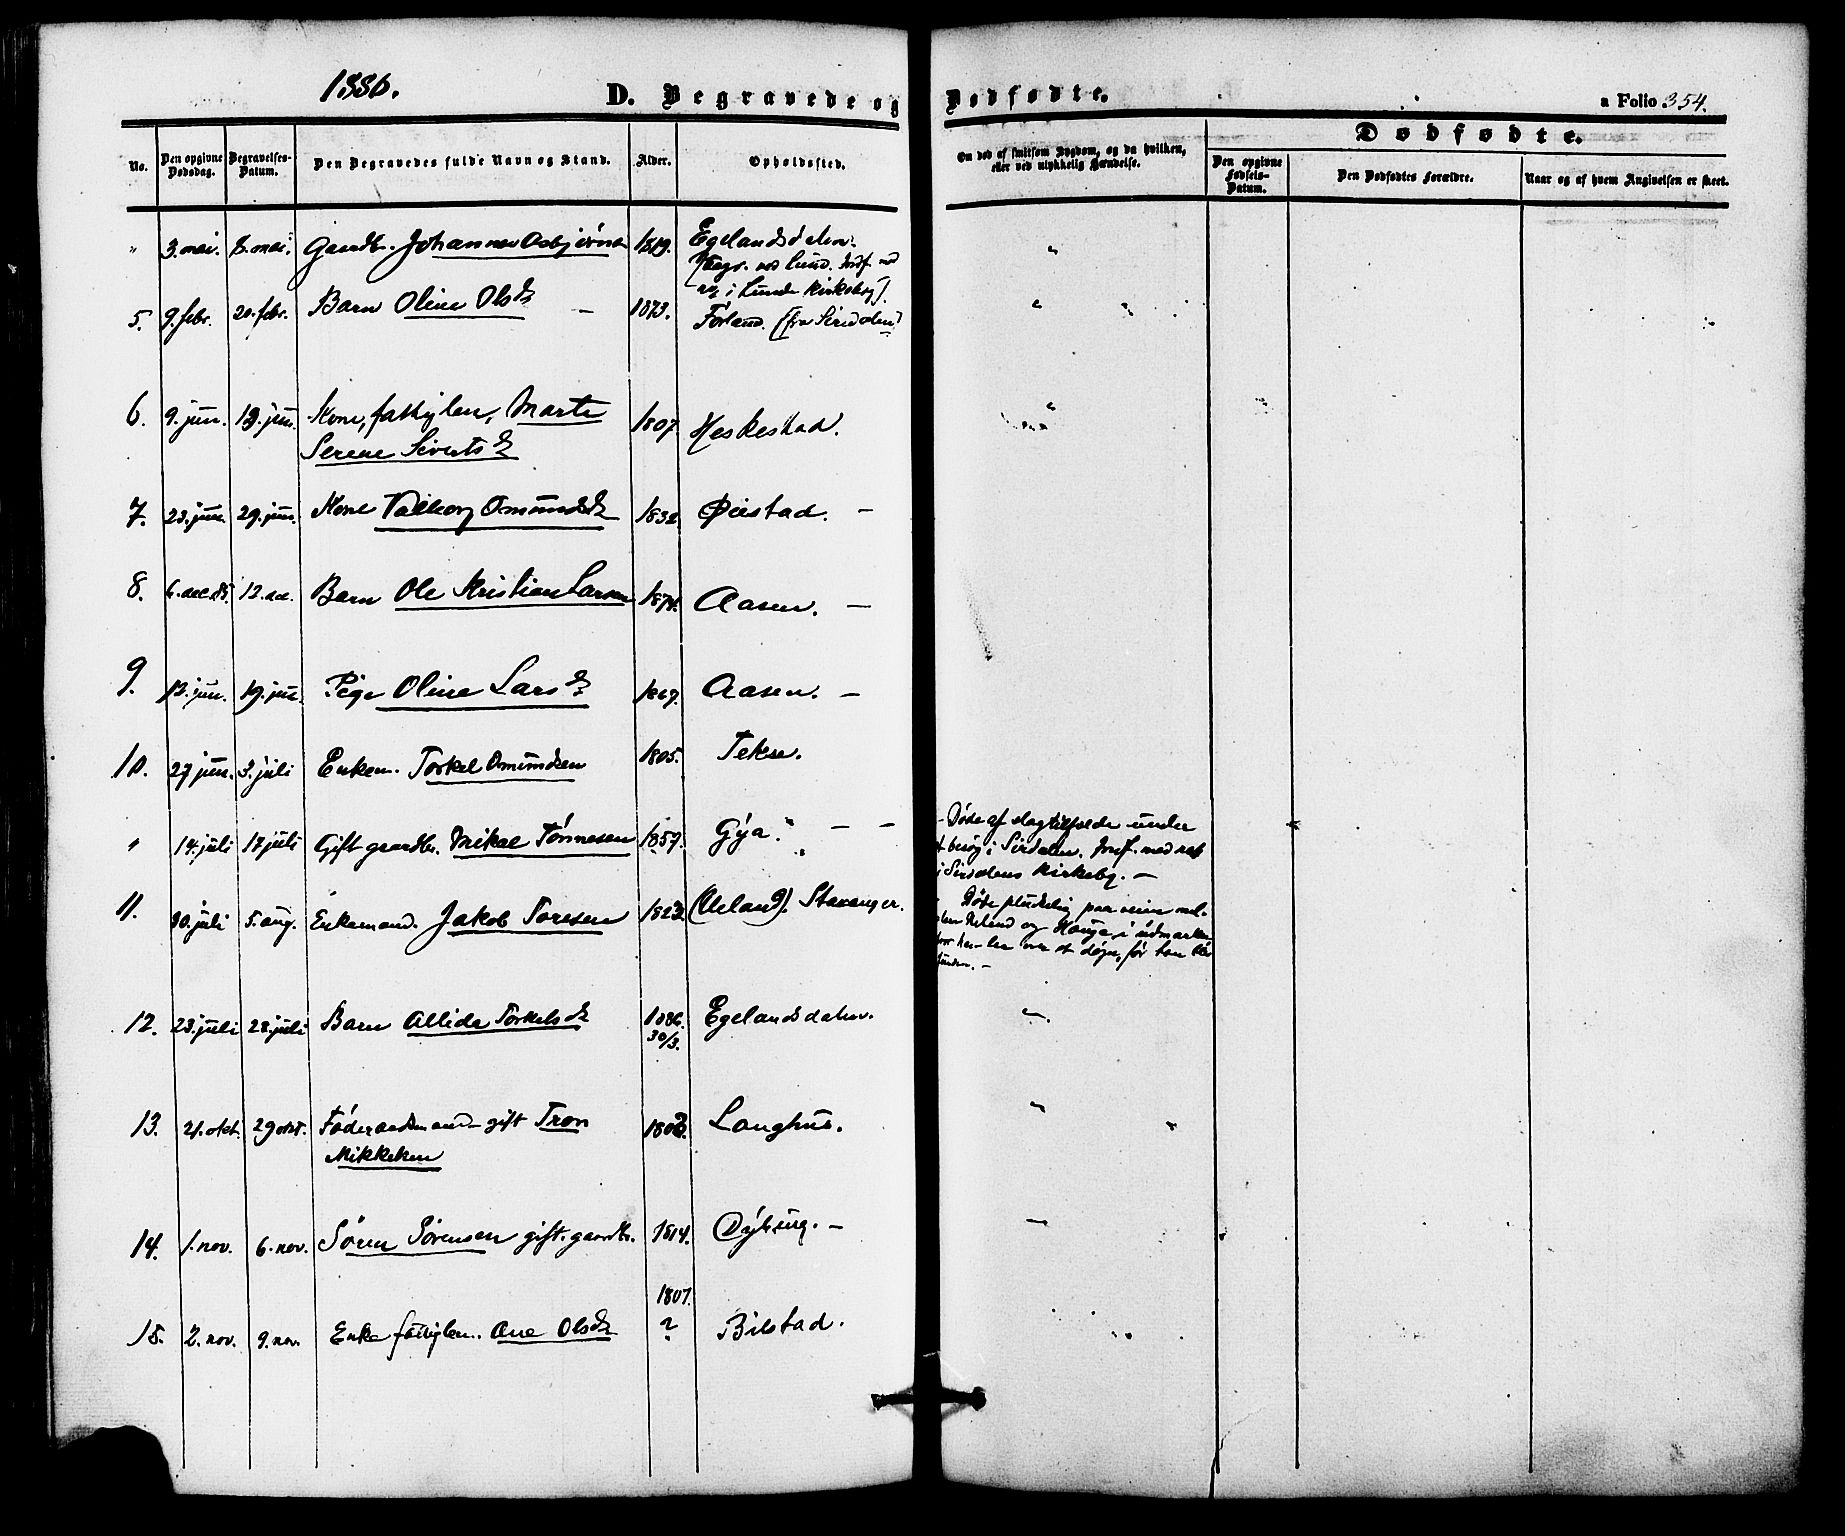 1886.
D. Begravede og Dødfødte.
a Folio 354.
No.
Den opgivne Dødsdag.
Begravelses-Datum.
Den Begravedes fulde Navn og Stand.
Alder.
Opholdssted.
Om død af smitsom Sygdom, og da hvilken,
eller ved ulykkelig Hændelse.
Dødfødte.
Den opgivne Fødsels-Datum.
Den Dødfødtes Forældre.
Naar og af hvem Angivelsen er skeet.
" 3. mai. 8. mai. Gaardbr. Johannes Asbjørns 1819. Egelandsdalen.
i Lunde kirkebog).
5. 9. febr. 20. febr. Barn Oline Olsd. – 1873. Førland. (fra Sirdalen)
6. 9. jun. 19. jun. Kone, fattiglem, Marte
Serene Sivertsd. 1807 Heskestad.
7. 23. jun. 29. jun. Kone Valborg Omundsd. 1832. Øiestad. –
8. 6. dec. 85. 12. dec. Barn Ole Kristian Larsen 1874. Aasen. –
9. 13. jun. 19. jun. Pige Oline Larsd. 1867. Aasen. –
10. 27 jun. 3. juli Enkem. Torkel Omundsen 1805. Tekse.
" 14. juli 17 juli Gift gaardbr. Mikal Tønnesen 1857. Gya. – –
Døde af slagtilfælde under
besøg i Sirdalen. Jordf. med
i Sirdalens kirkeby. –
11. 30. juli 5. aug. Enkemand. Jakob Toresen 1823. (Ueland). Stavanger.
Døde pludselig paa veien mel-
lem Ueland og Hauge, i udmarken
over et døgn, før han blev
funden. –
12. 23. juli 28. juli Barn Allida Torkelsd. 1886. 30/3. Egelandsdalen.
13. 21. okt. 29 okt. Føderaadsmand gift Tron
Mikkelsen 1803. Langhus.
14. 1. nov. 6. nov. Søren Sørensen gift. gaardbr. 1814. Dybing. –
15. 2. nov. 9. nov. Enke fattiglem. Ane Olsd. 1807. ? Bilstad.